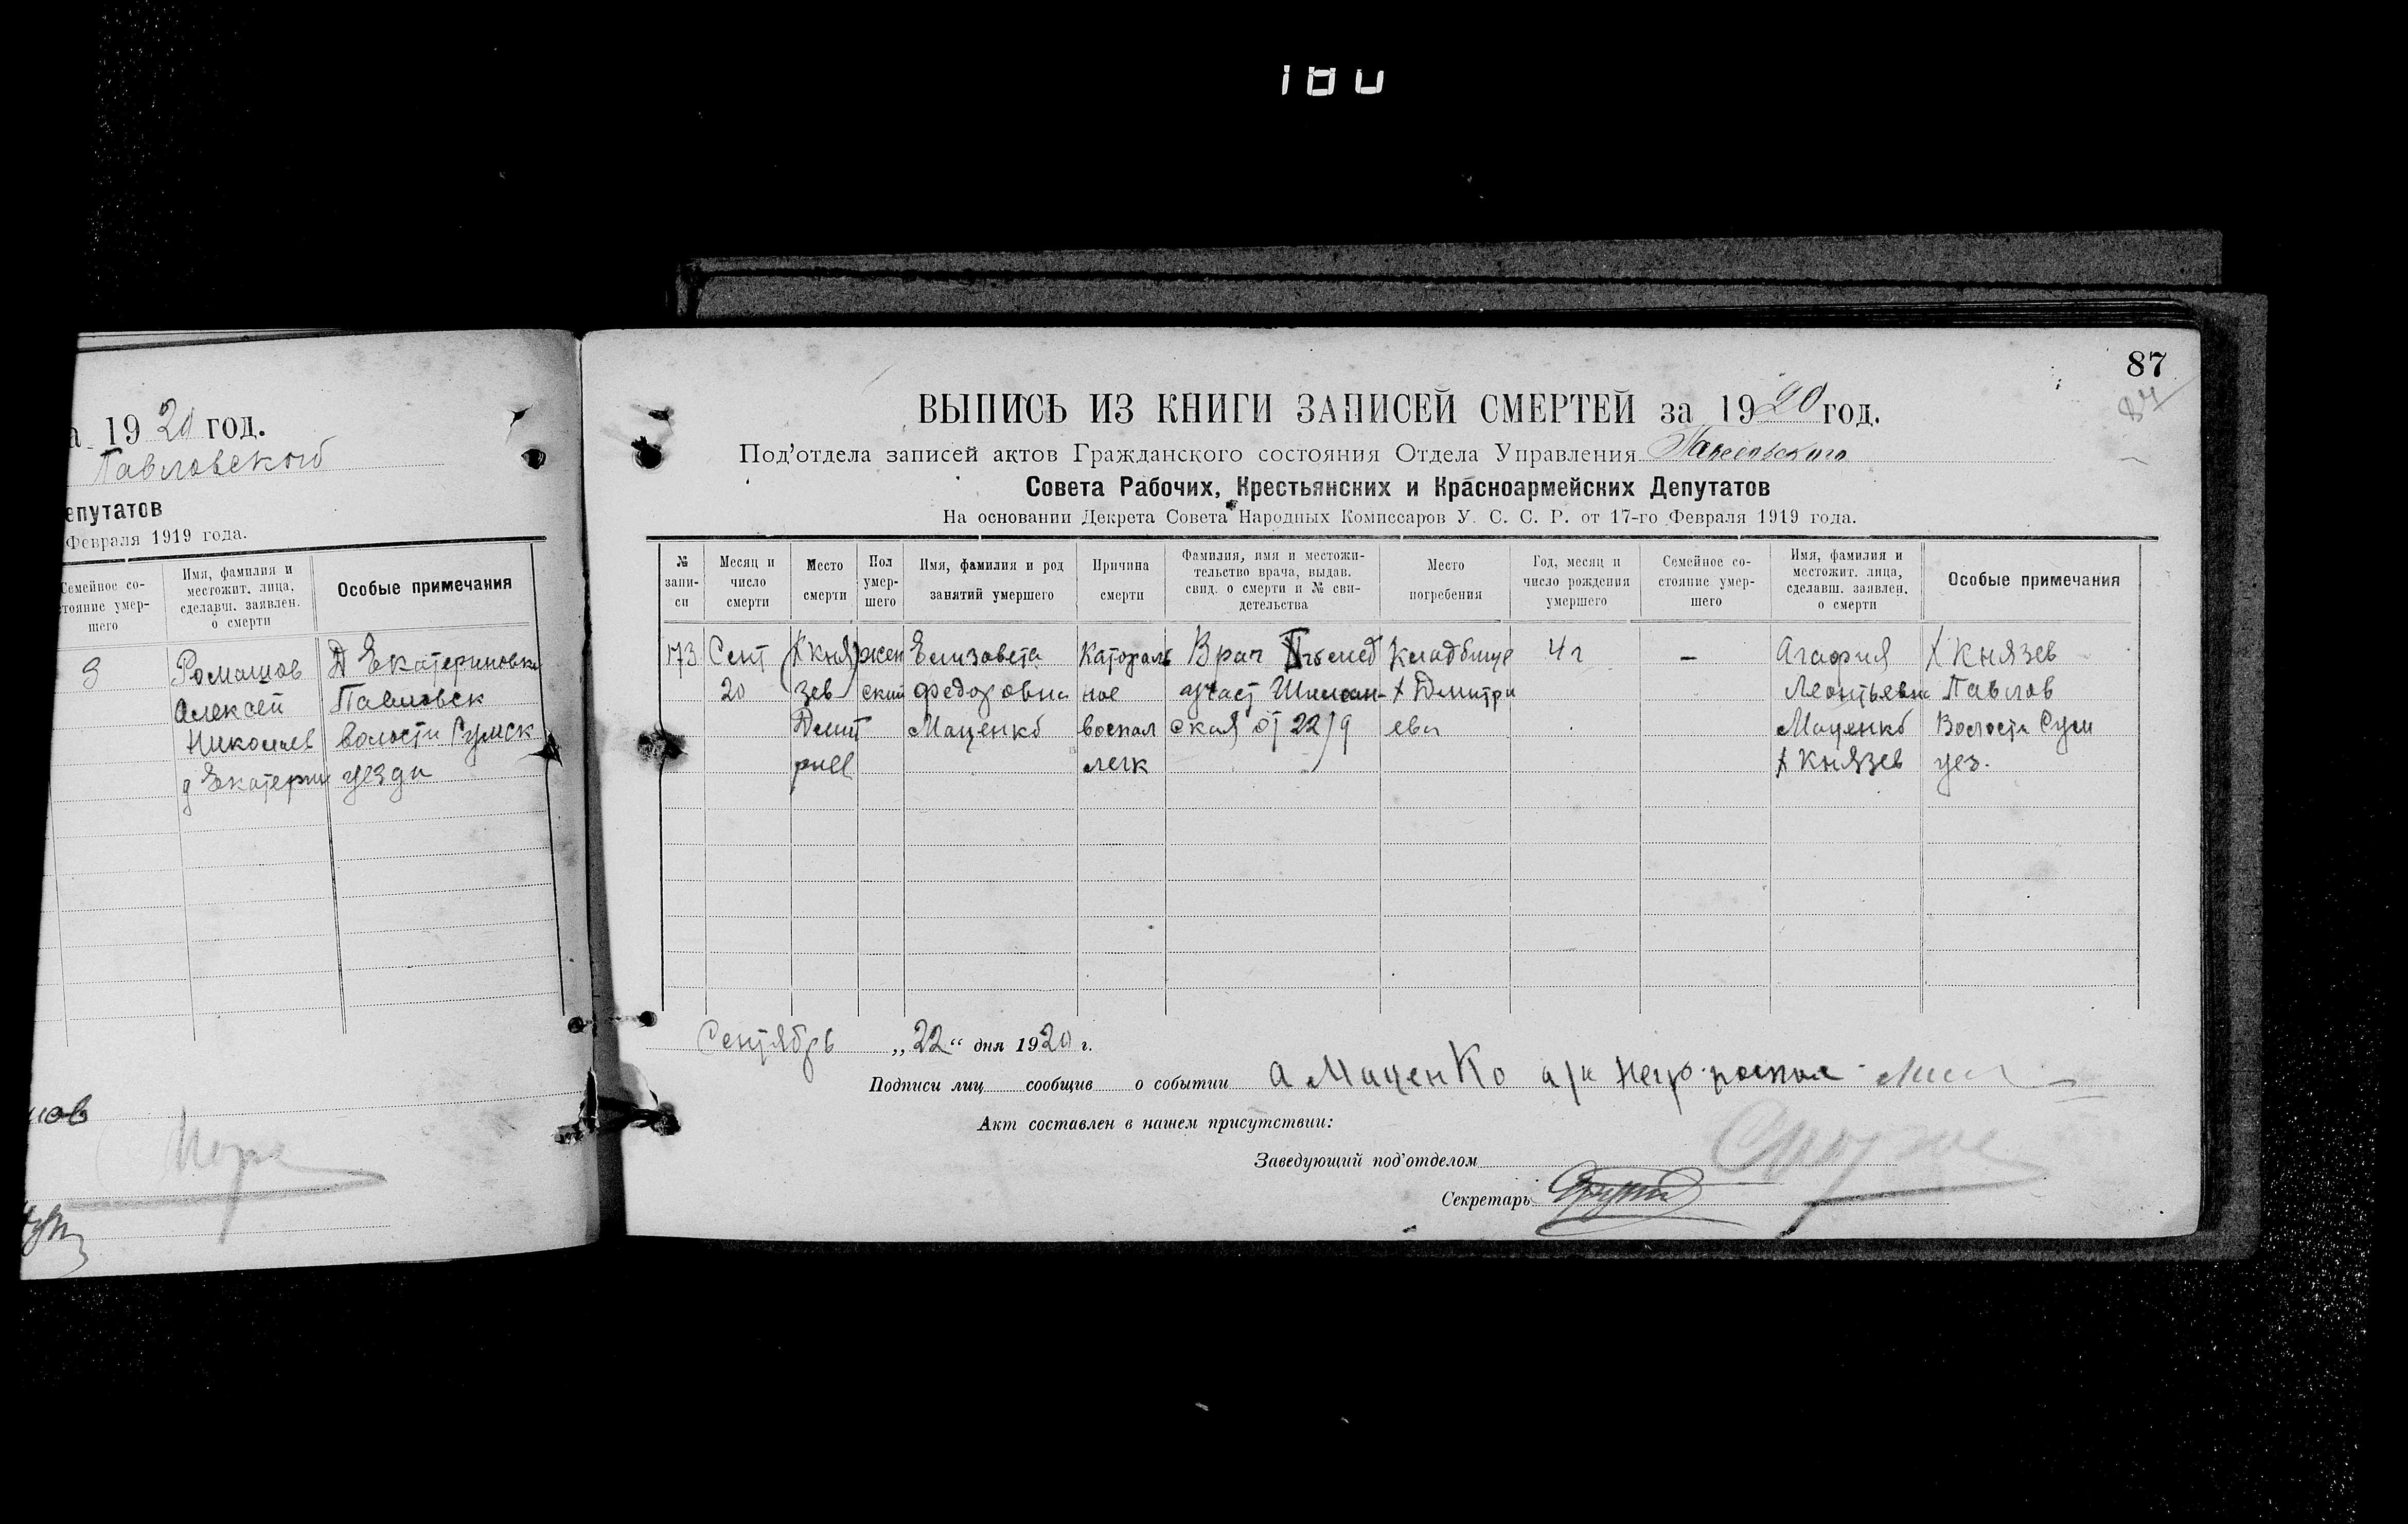 180
а 1920 год.
Павловской
епутатов
Февраля 1919 года.
Семейное со-
тояние умер-
шего
Имя, фамилия и
местожит. лица,
сделавш. заявлен.
о смерти
Особые примечания
Ромашов
Алексей
Николаев
д Екатерин
Д Екатериновка
Павловск
волости Сумск
уезда
нов
87
84
ВЫПИСЬ ИЗ КНИГИ ЗАПИСЕЙ СМЕРТЕЙ за 1920 год.
Под'отдела записей актов Гражданского состояния Отдела Управления Павловского
Совета Рабочих, Крестьянских и Красноармейских Депутатов
На основании Декрета Совета Народных Комиссаров У. С. С. Р. от 17-го Февраля 1919 года.
№
запи-
си
Месяц и
число
смерти
Место
смерти
Пол
умер-
шего
Имя, фамилия и род
занятий умершего
Причина
смерти
Фамилия, имя и местожи-
тельство врача, выдав.
свид. о смерти и № сви-
детельства
Место
погребения
Год, месяц и
число рождения
умершего
Семейное со-
стояние умер-
шего
Имя, фамилия и
местожит. лица,
сделавш. заявлен.
о смерти
Особые примечания
173
Сент
20
Х Кня
зев
Дмит
риев
жен
ский
Елизавета
Федоровна
Маценко
Катораль
ное
воспал
легк
Врач
участ Шиман-
ская от 22/9
Кладбище
х Дмитри
ева
4 г
–
Агафия
Леонтьевна
Маценко
х Князев
Х Князев
Павлов
Волости Сум
уез.
Сентябрь „22“ дня 1920 г.
Подписи лиц сообщив о событии а Маценко а/н
Акт составлен в нашем присутствии:
Заведующий под'отделом
Секретарь